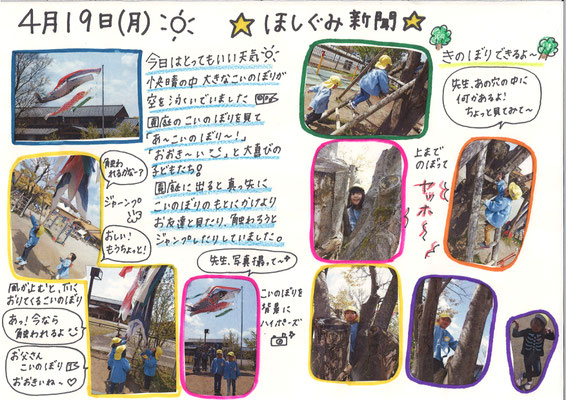 4月19日(月)
☆ほしぐみ新聞☆
今日はとってもいい天気
快晴の中 大きなこいのぼりが
空を泳いでいました
園庭のこいのぼりを見て
「あ〜こいのぼり〜!」
「おおき〜い」と大喜びの
子どもたち!
園庭に出ると真っ先に
こいのぼりのもとにかけより
お友達と見たり、触わろうと
ジャンプしたりしていました。
触わ
れるかな〜?
ジャーンプ
おしい!
もうちょっと!
風が止むと、下に
おりてくるこいのぼり
あっ!今なら
触われるよ
お父さん
こいのぼり
おおきいね〜♡
先生、写真撮って〜
こいのぼりを
背景に
ハイポーズ
きのぼりできるよ〜
先生、あの穴の中に
何かあるよ!
ちょっと見てみて〜
上まで
のぼって
ヤッホー